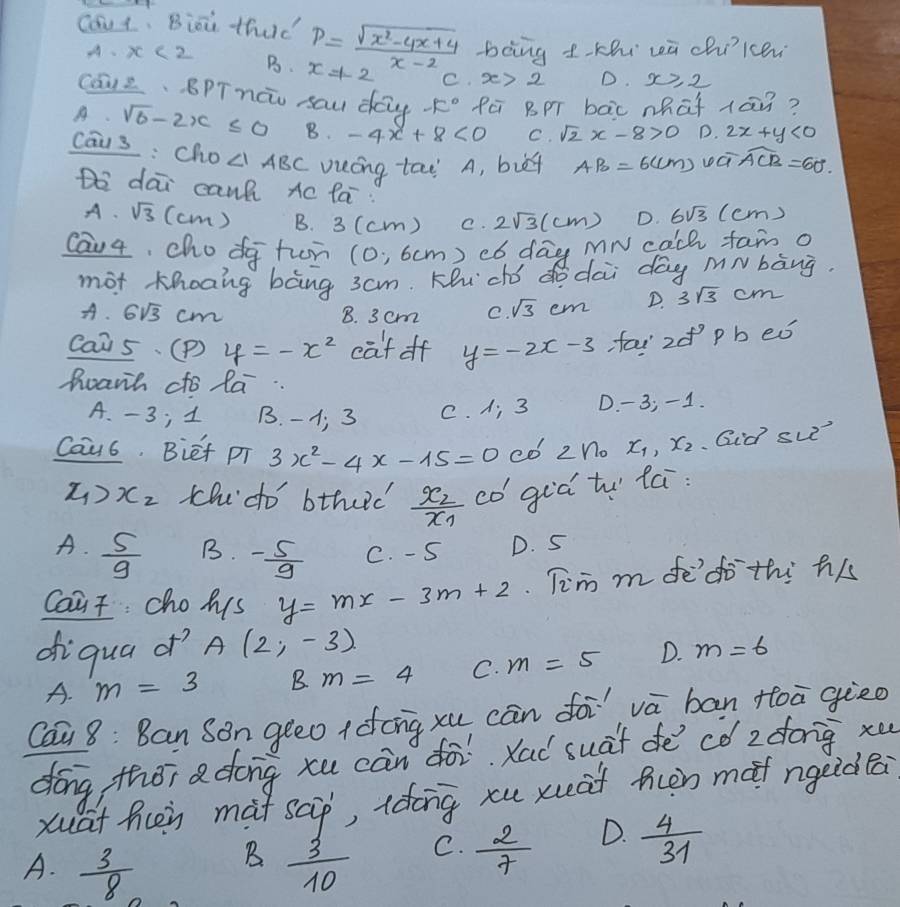 Câu 1. Biểu thức P = √(x²-4x+4) / (x-2) bằng 1 khi và chỉ khi
A. x < 2 B. x ≠ 2 C. x > 2 D. x ≥ 2
Câu 2. BPT nào sau đây k° là BPT bậc nhất 1 ẩn?
A. √6 - 2x ≤ 0 B. -4x + 8 < 0 C. √2 x - 8 > 0 D. 2x + y < 0
Câu 3: Cho △ ABC vuông tại A, biết AB = 6(cm) và ACB = 60°.
Độ dài cạnh AC là:
A. √3 (cm) B. 3 (cm) C. 2√3 (cm) D. 6√3 (cm)
Câu 4. Cho đg tròn (O; 6cm) có dây MN cách tâm O
một khoảng bằng 3cm. Khi đó độ dài dây MN bằng.
A. 6√3 cm B. 3 cm C. √3 cm D. 3√3 cm
Câu 5. (P) y = -x² cắt đt y = -2x - 3 tại 2đ' pb có
hoành độ là :
A. -3; 1 B. -1; 3 C. 1; 3 D. -3; -1.
Câu 6. Biết PT 3x² - 4x - 15 = 0 có 2 n₀ x₁, x₂. Giả sử
x₁ > x₂ khi đó bthức x₂/x₁ có giá trị là :
A. 5/9 B. -5/9 C. -5 D. 5
Câu 7: Cho h/s y = mx - 3m + 2. Tìm m để đồ thị h/s
đi qua đ' A (2; -3)
A. m = 3 B. m = 4 C. m = 5 D. m = 6
Câu 8: Bạn Sơn gieo 1 đồng xu cân đối và bạn Hoà gieo
đồng thời 2 đồng xu cân đối. Xác suất để có 2 đồng xu
xuất hiện mặt sấp, 1 đồng xu xuất hiện mặt ngửa là
A. 3/8 B. 3/10 C. 2/7 D. 4/31